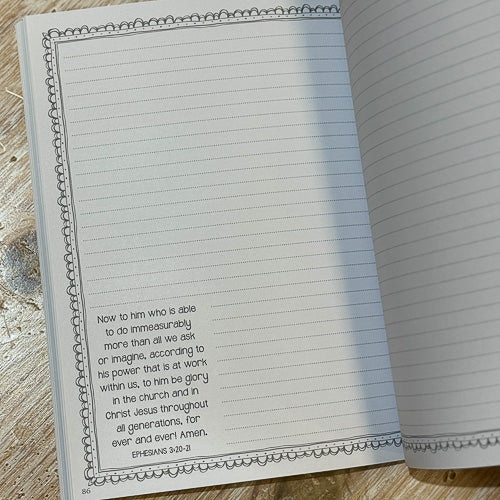 Now to him who is able
to do immeasurably
more than all we ask
or imagine, according to
his power that is at work
within us, to him be glory
in the church and in
Christ Jesus throughout
all generations, for
ever and ever! Amen.
EPHESIANS 3:20-21
86